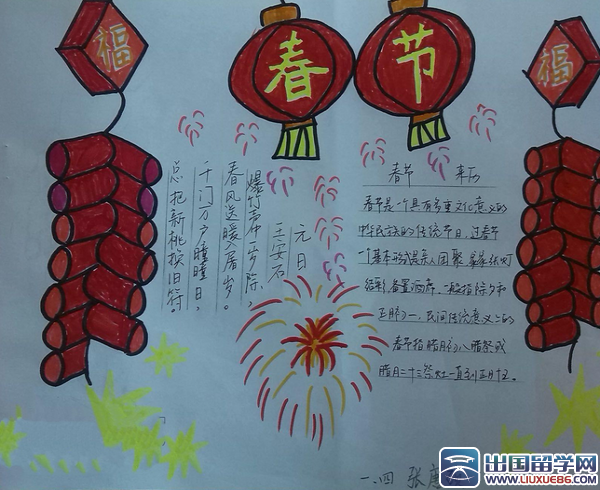 福
春
节
福
元日
王安石
爆竹声中一岁除，
春风送暖入屠苏。
千门万户瞳瞳日，
总把新桃换旧符。
春节 来历
春节是一个具有多重文化意义的
中华民族的传统节日，过春节
一个基本形式是亲人团聚
结彩，备置酒席，一般指除夕和
正月初一，民间传统意义上的
春节指腊月初八腊祭或
腊月二十三祭灶一直到正月十五。
一、四 张
出国留学网
www.liuxue86.com